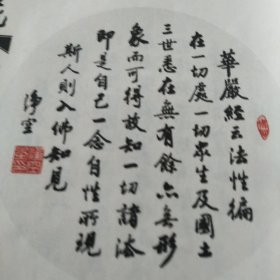 華嚴經云法性徧
在一切處一切眾生及國土
三世悉在無有餘亦無形
象而可得故知一切諸法
即是自己一念自性所現
斯人則入佛知見
淨空